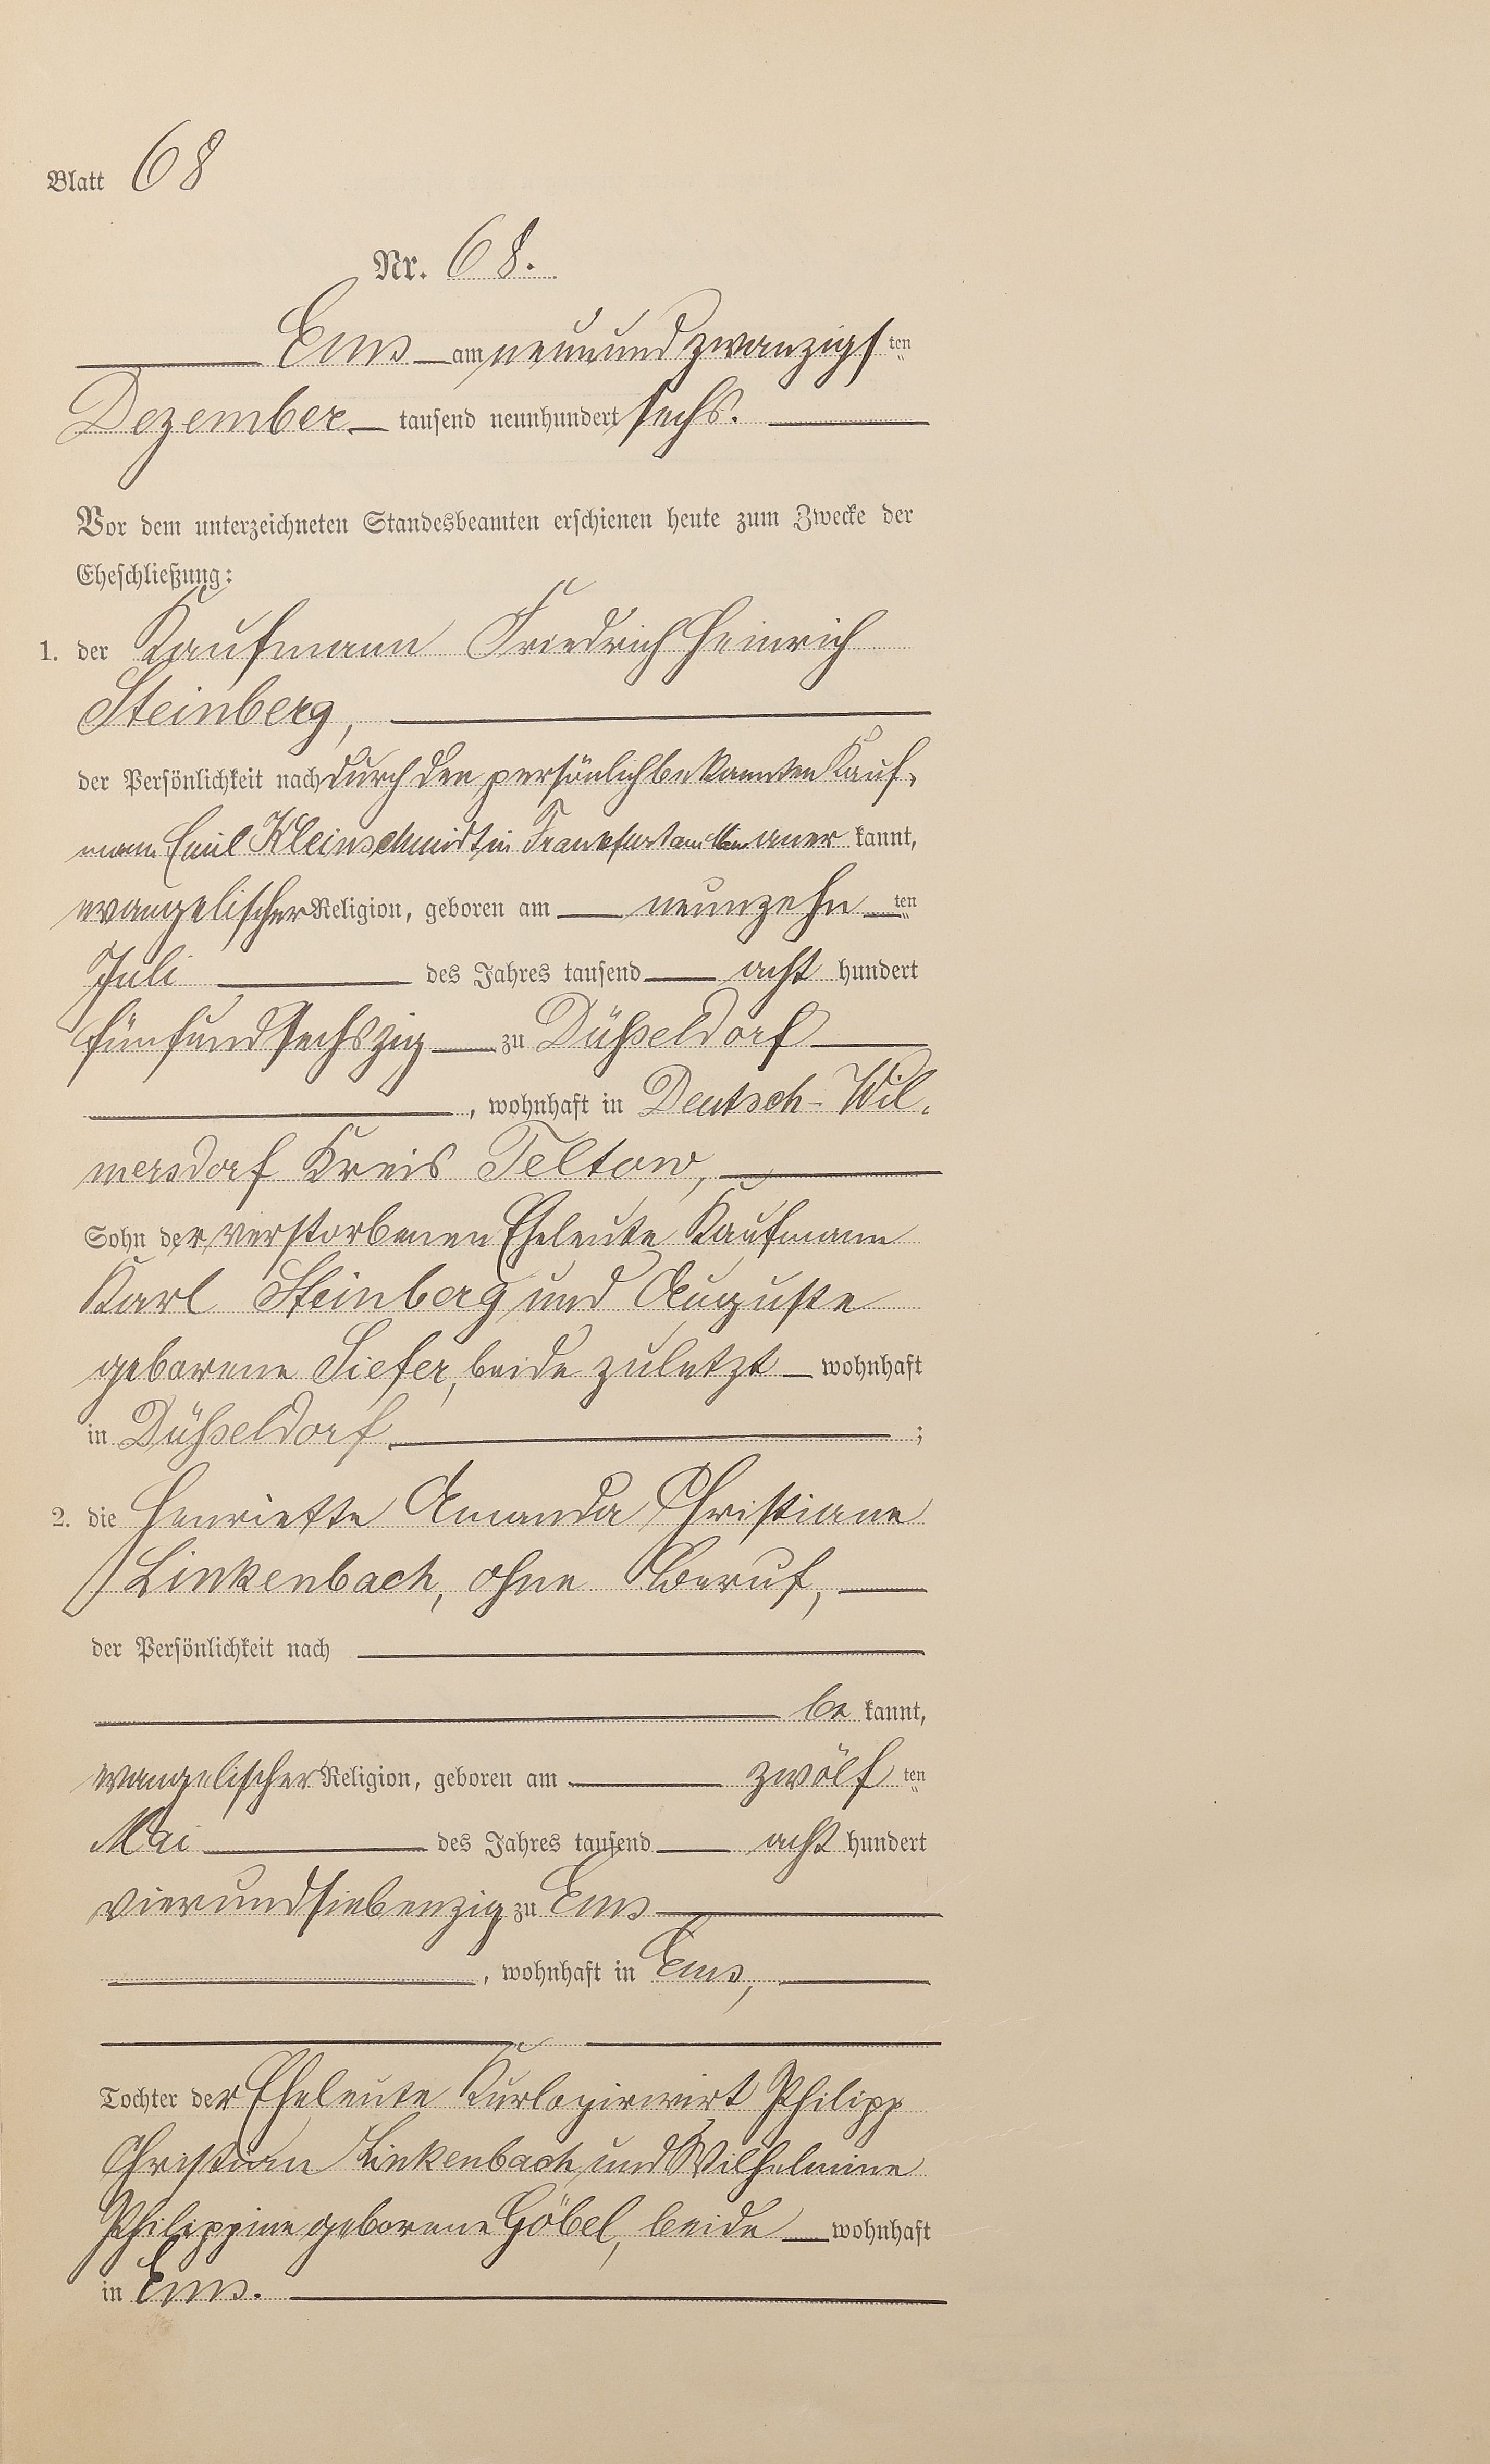 Blatt 68
Nr. 68.
Ems am neunundzwanzigsten
Dezember tausend neunhundert sechs.
Vor dem unterzeichneten Standesbeamten erschienen heute zum Zwecke der
Eheschließung:
1. der Kaufmann Friedrich Heinrich
Steinberg,
der Persönlichkeit nach durch den persönlich bekannten Kauf-
mann Emil Kleinschmidt in Frankfurt am Main aner kannt,
evangelischer Religion, geboren am neunzehnten
Juli des Jahres tausend acht hundert
fünfundsechszig zu Düsseldorf
, wohnhaft in Deutsch-Wil-
mersdorf Kreis Teltow,
Sohn der verstorbenen Eheleute Kaufmann
Karl Steinberg und Auguste
geborene Siefer, beide zuletzt wohnhaft
in Düsseldorf ;
2. die Henriette Amanda Christiane
Linkenbach, ohne Beruf,
der Persönlichkeit nach
be kannt,
evangelischer Religion, geboren am zwölften
Mai des Jahres tausend acht hundert
vierundsiebenzig zu Ems
, wohnhaft in Ems,
Tochter der Eheleute Kurlogirwirt Philipp
Christian Linkenbach und Wilhelmine
Philippine geborene Göbel, beide wohnhaft
in Ems.